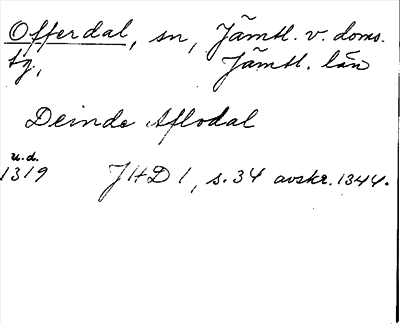 Offerdal, sn, Jämtl. v. doms.
tg, Jämtl. län
Deinde Aflodal
u.d.
1319 JHD 1, s. 34 avskr. 1344.